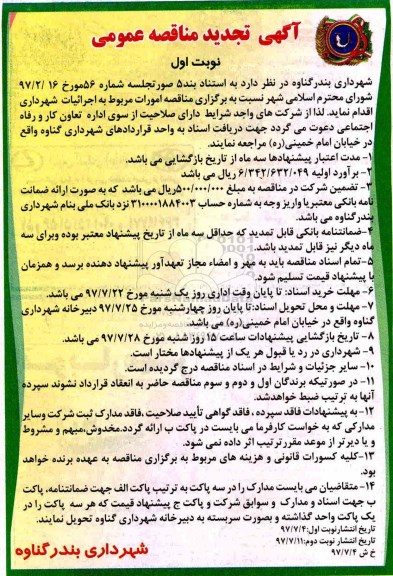 آگهی تجدید مناقصه عمومی
نوبت اول
شهرداری بندرگناوه در نظر دارد به استناد بند۵ صورتجلسه شماره ۵۶مورخ ۹۷/۲/۱۶
شورای محترم اسلامی شهر نسبت به برگزاری مناقصه امورات مربوط به اجرائیات شهرداری
اقدام نماید. لذا از شرکت های واجد شرایط دارای صلاحیت از سوی اداره تعاون کار و رفاه
اجتماعی دعوت می گردد جهت دریافت اسناد به واحد قراردادهای شهرداری گناوه واقع
در خیابان امام خمینی(ره) مراجعه نمایند.
۱- مدت اعتبار پیشنهادها سه ماه از تاریخ بازگشایی می باشد.
۲- برآورد اولیه ۶/۳۴۲/۶۳۲/۰۴۹ ریال می باشد
۳- تضمین شرکت در مناقصه به مبلغ ۵۰۰/۰۰۰/۰۰۰ریال می باشد که به صورت ارائه ضمانت
نامه بانکی معتبر یا واریز وجه به شماره حساب ۳۱۰۰۰۰۱۸۸۴۰۰۳ نزد بانک ملی بنام شهرداری
بندرگناوه می باشد.
۴-ضمانتنامه بانکی قابل تمدید که حداقل سه ماه از تاریخ پیشنهاد معتبر بوده وبرای سه
ماه دیگر نیز قابل تمدید باشد.
۵-تمام اسناد مناقصه باید به مهر و امضاء مجاز تعهدآور پیشنهاد دهنده برسد و همزمان
با پیشنهاد قیمت تسلیم شود.
۶- مهلت خرید اسناد: تا پایان وقت اداری روز یک شنبه مورخ ۹۷/۷/۲۲ می باشد.
۷- مهلت و محل تحویل اسناد:تا پایان روز چهارشنبه مورخ ۹۷/۷/۲۵ دبیرخانه شهرداری
گناوه واقع در خیابان امام خمینی(ره) می باشد.
۸- تاریخ بازگشایی پیشنهادات ساعت ۱۵روز شنبه مورخ ۹۷/۷/۲۸ می باشد.
۹- شهرداری در رد یا قبول هر یک از پیشنهادها مختار است.
۱۰- سایر جزئیات و شرایط در اسناد مناقصه درج گردیده است.
۱۱- در صورتیکه برندگان اول و دوم و سوم مناقصه حاضر به انعقاد قرارداد نشوند سپرده
آنها به ترتیب ضبط خواهدشد.
۱۲-به پیشنهادات فاقد سپرده ، فاقد گواهی تأیید صلاحیت ،فاقد مدارک ثبت شرکت وسایر
مدارکی که به خواست کارفرما می بایست در پاکت ب ارائه گردد.مخدوش،مبهم و مشروط
و یا دیرتر از موعد مقرر ترتیب اثر داده نمی شود.
۱۳-کلیه کسورات قانونی و هزینه های مربوط به برگزاری مناقصه به عهده برنده خواهد
بود.
۱۴- متقاضیان می بایست مدارک را در سه پاکت به ترتیب پاکت الف جهت ضمانتنامه، پاکت
ب جهت اسناد و مدارک و سوابق شرکت و پاکت ج پیشنهاد قیمت که هر سه پاکت را در
یک پاکت واحد گذاشته و بصورت سربسته به دبیرخانه شهرداری گناوه تحویل نمایند.
تاریخ انتشارنوبت اول:۹۷/۷/۴
تاریخ انتشار نوبت دوم:۹۷/۷/۱۱
خ ش ۹۷/۷/۴
شهرداری بندرگناوه